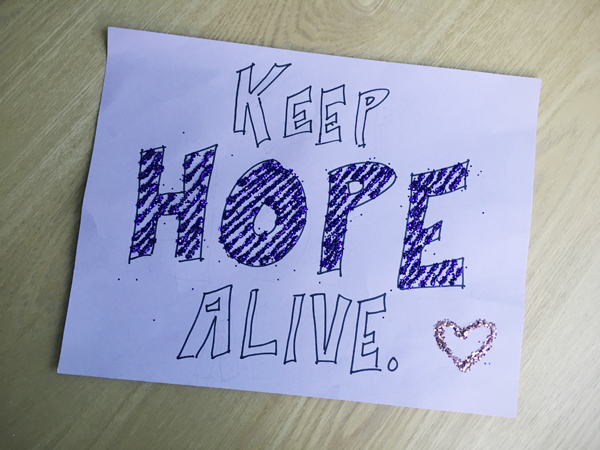 KEEP
HOPE
ALIVE.